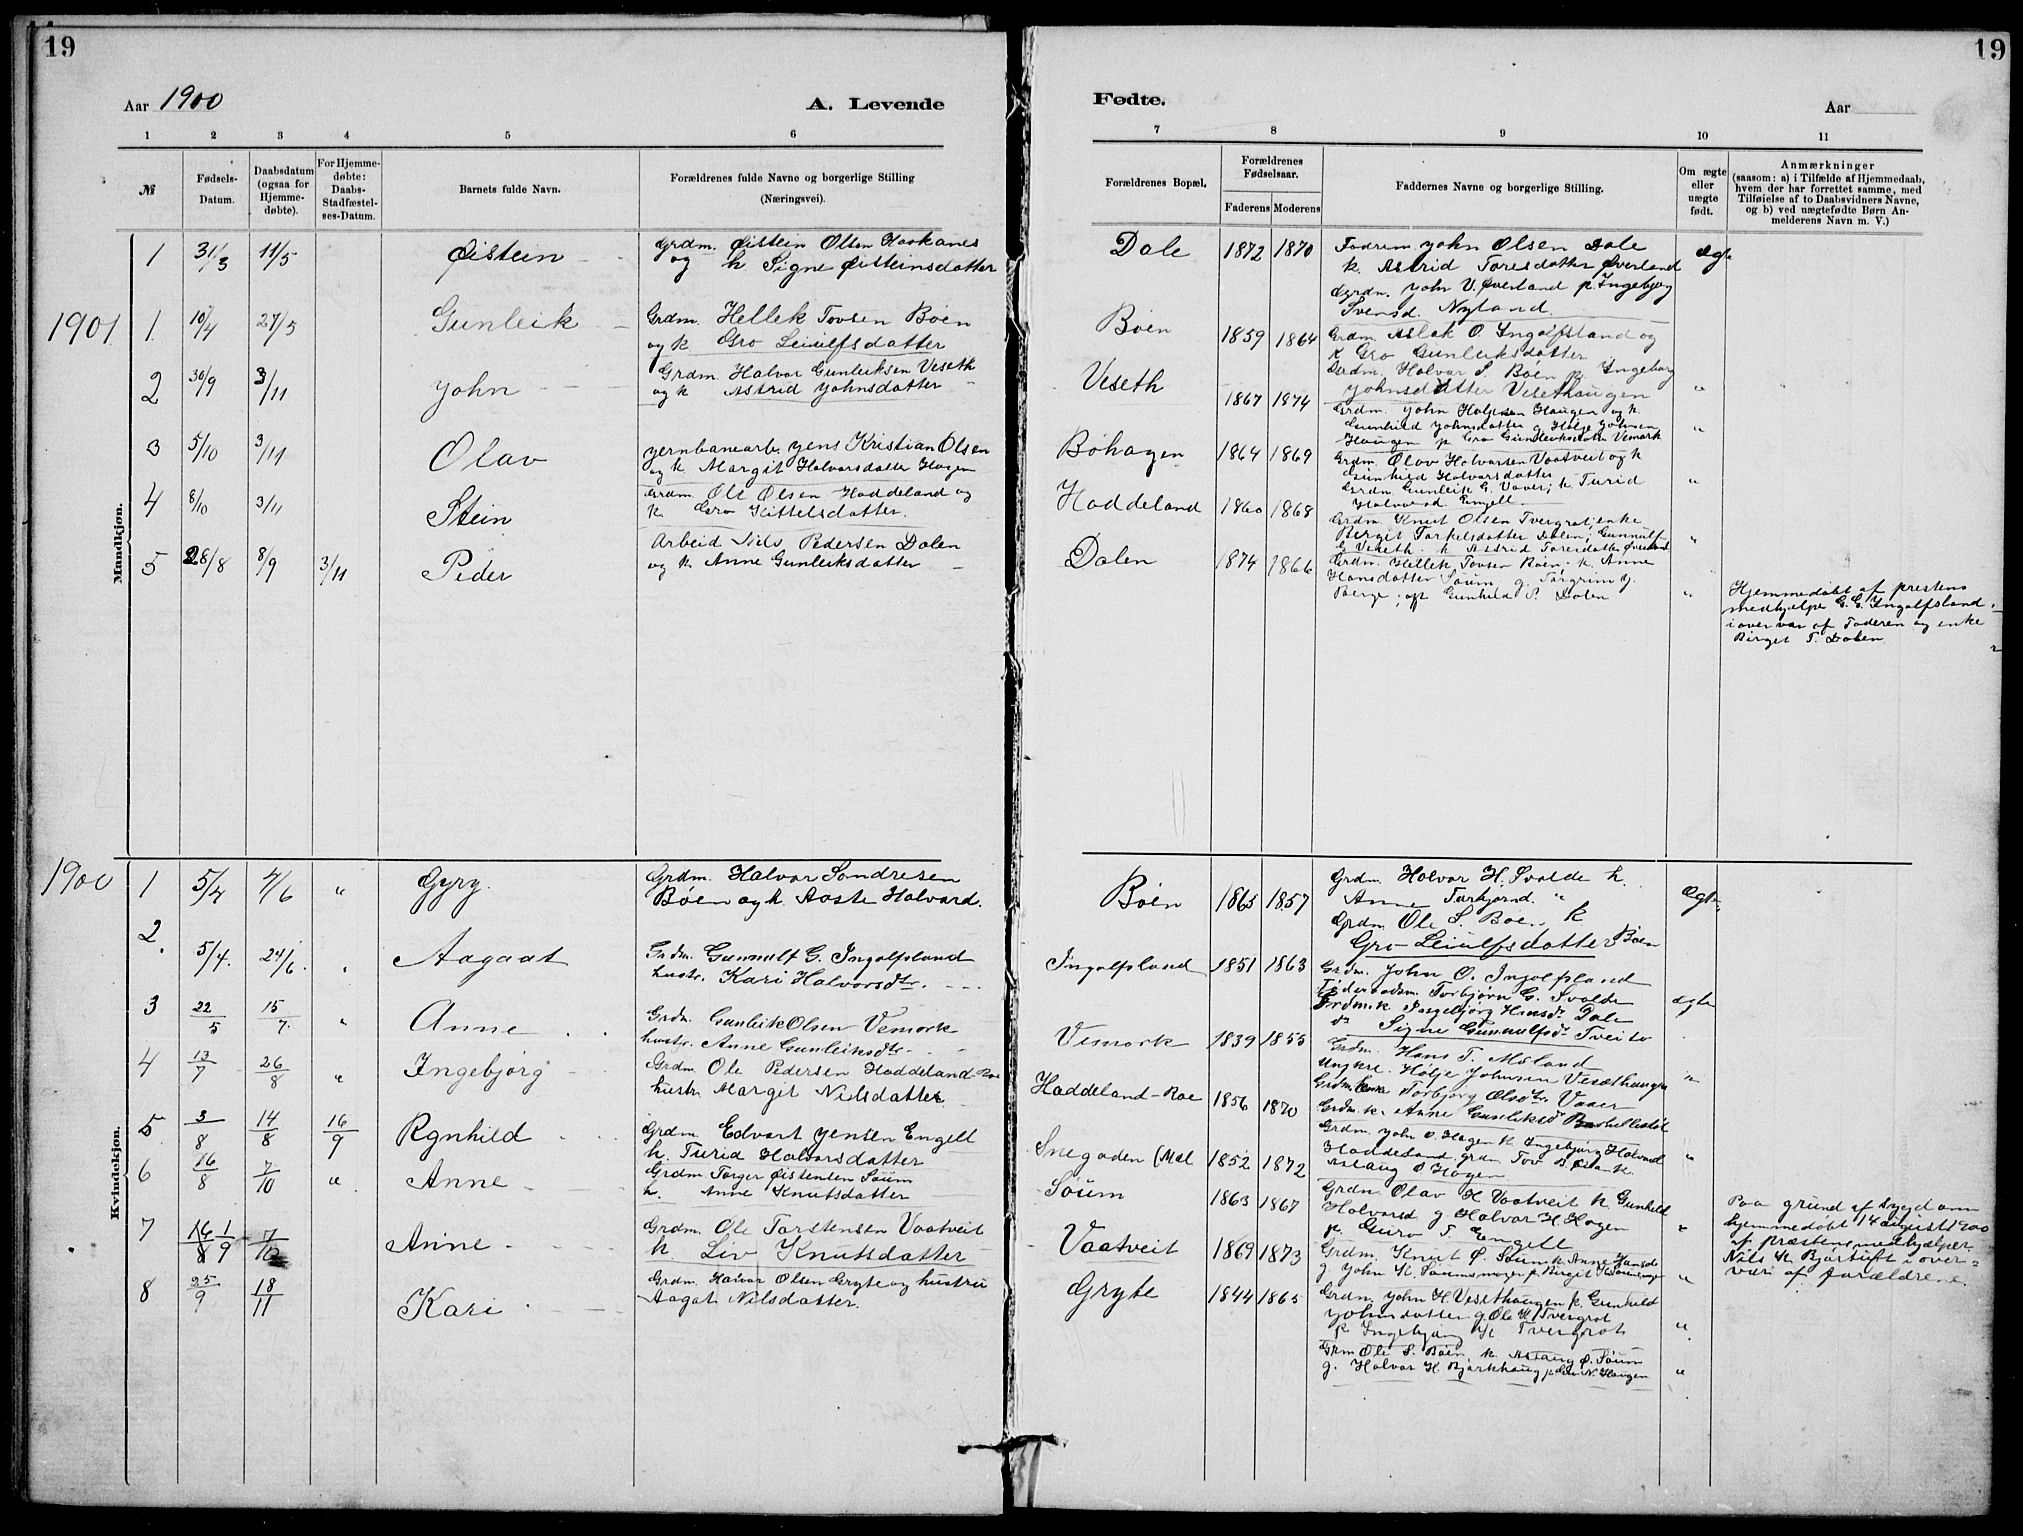 19
Aar 1900
A. Levende
1 2 3 4 5 6
№
Fødsels-Datum.
Daabsdatum (ogsaa for Hjemme-døbte).
For Hjemme-døbte: Daabs-Stadfæstel-ses-Datum.
Barnets fulde Navn.
Forældrenes fulde Navne og borgerlige Stilling
(Næringsvei).
Mandkjøn.
1 31/3 11/5 Øistein
Grdm. Øistein Olsen Haakanes
og h Signe Øisteinsdatter
1901
1 10/4 27/5 Gunleik
Grdm. Hellek Tovsen Bøen
og k Gro Leiulfsdatter
2 30/9 3/11 John
Grdm. Halvor Gunleiksen Veseth
og k Astrid Johnsdatter
3 5/10 3/11 Olav
Jernbanearb. Jens Kristian Olsen
og k Margit Halvorsdatter Hagen
4 8/10 3/11 Stein
Grdm Ole Olsen Haddeland og
k Gro Kittelsdatter.
5 28/8 8/9 3/11 Peder
Arbeid Niels Pedersen Dalen
og k Anne Gunleiksdatter
1900
Kvindekjøn.
1 5/4 4/6 " Gyry
Grdm. Halvor Sondresen
Bøen og h. Aaste Halvord.
2. 5/4. 24/6. " Aagaat
Grdm. Gunnulf G. Ingolfsland
hustr. Kari Halvorsdtr.
3 22/5 15/7. " Anne
Grdm. Gunleik Olsen Vemork
hustr. Anne Gunleiksdtr.
4 13/7 26/8 " Ingebjørg
Grdm. Ole Pedersen Haddeland-Roe
hustr. Margit Nilsdatter
5. 3/8 14/8 16/9 Rgnhild
Grdm. Edvart Jensen Engell
h. Turid Halvorsdatter
6 16/8 7/10 " Anne
Grdm Torger Øistensen Søum
h. Anne Knutsdatter
7 1/9 7/10 Anne
Grdm. Ole Torstensen Vaatveit
h. Liv Knutsdatter
8 25/9 18/11 Kari
Grdm. Halvor Olsen Gryte og hustru
Aagat Nilsdatter.
19
Fødte.
Aar
7 8 9 10 11
Forældrenes Bopæl.
Forældrenes Fødselsaar.
Faderens Moderens
Faddernes Navne og borgerlige Stilling.
Om ægte eller uægte født.
Anmærkninger
(saasom: a) i Tilfælde af Hjemmedaab,
hvem der har forrettet samme, med
Tilføielse af to Daabsvidners Navne,
og b) ved uægtefødte Børn An-
melderens Navn m. V.)
Dale 1872 1870
John Olsen Dale
k. Astrid Toresdatter Øverland
John V. Øverland p. Ingebjøg
Svensd. Nyland.
Ægte
Bøen 1859 1864
Grdm Aslak O. Ingolfsland og
k Gro Gunleiksdatter
Grdm. Halvor S Bøen p. Ingeborg
Johnsdatter Vesethaugen
"
Veseth 1867 1874
Grdm. John Haljesen Haugen og k.
Gunhild Johnsdatter g. Holje Johnsen
Haugen p Gro Gunleiksdatter Vemork
"
Bøhagen 1864 1869
Grdm. Olav Halvorsen Vaatveit og k
Gunhild Halvorsdatter
Grdm Gunleik G. Vaaer; k. Turid
Halvorsd. Engell
"
Haddeland 1860 1868
Grdm. Knut Olsen Tvergrot; enke
Bergit Torkelsdatter Dalen; Gunnulf
G Veseth. k Astrid Toresdatter Øverland
"
Dalen 1874 1866
Grdm. Hellek Tovsen Bøen; k. Anne
Hansdatter Søum g. Torgrim
Berge; og Gunhild P. Dalen
"
Hjemmedøbt af prestens
medhjelpe G. G. Ingolfsland
i over vær af Faderen og enke
Birget T. Dalen.
Bøen 1865 1857
Grdm. Halvor H. Svalde h.
Anne Torbjørnd. "
Grdm Ole S. Bøen, k
Gro Leiulfsdatter Bøen
Ægte
Ingolfsland 1851 1863
Grdm. John O. Ingolfsland
Føderaadsm. Torbjørn G. Svalde
Grdm.k. Ingebjørg Hansd. Dale
do Signe Gunnulfsd. Tveito
ægte
Vemork 1839 1855
Grdm. Hans T. Mæland
Ungkrl. Holje Johnsen Vesæthaugen
Torbjørg Olsdtr Vaaer
Grdm.k. Anne Gunleiksd
"
Haddeland-Roe 1856 1870
Grdm. John O. Hagen k Ingebjørg Halvord
Haddeland, grdm Tov B.
Aslaug O Hagen
"
Snegaden (Mæl 1852 1872
Grdm. Olav H Vaatveit k Gunhild
Halvorsd g Halvor H. Hagen
p. Guro T. Engell
"
Paa grund af Sygdom
hjemmedøbt 14 august 1900
af præstens medhjælper
Nils K Bjørtuft i over-
vær af forældrene.
Søum 1863 1867
Grdm. Knut Ø. Søum k Anne Hansd
g. John K. Søum p. Birgit K.
"
Vaatveit 1869 1873
Grdm. John H. Vesethaugen k. Gunhild
Johnsdatter g Ole K Tvergrot
p Ingebjørg K Tvergrot
"
Gryte 1844 1865
Grdm Ole S. Bøen k. Aslaug Ø. Søum
g. Halvor H. Bjørkhaug p. N. Haugen
"